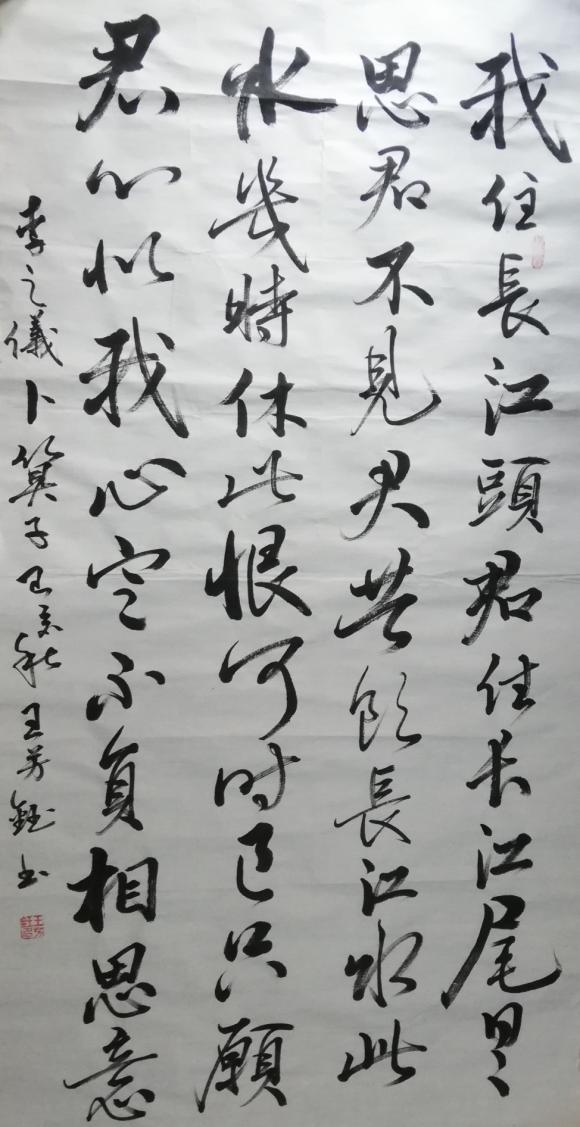 我住長江頭君住长江尾日〻
思君不見君共飲長江水此
水幾時休此恨何时已只願
君心似我心定不負相思意
李之儀卜算子己亥秋王芳鈺书